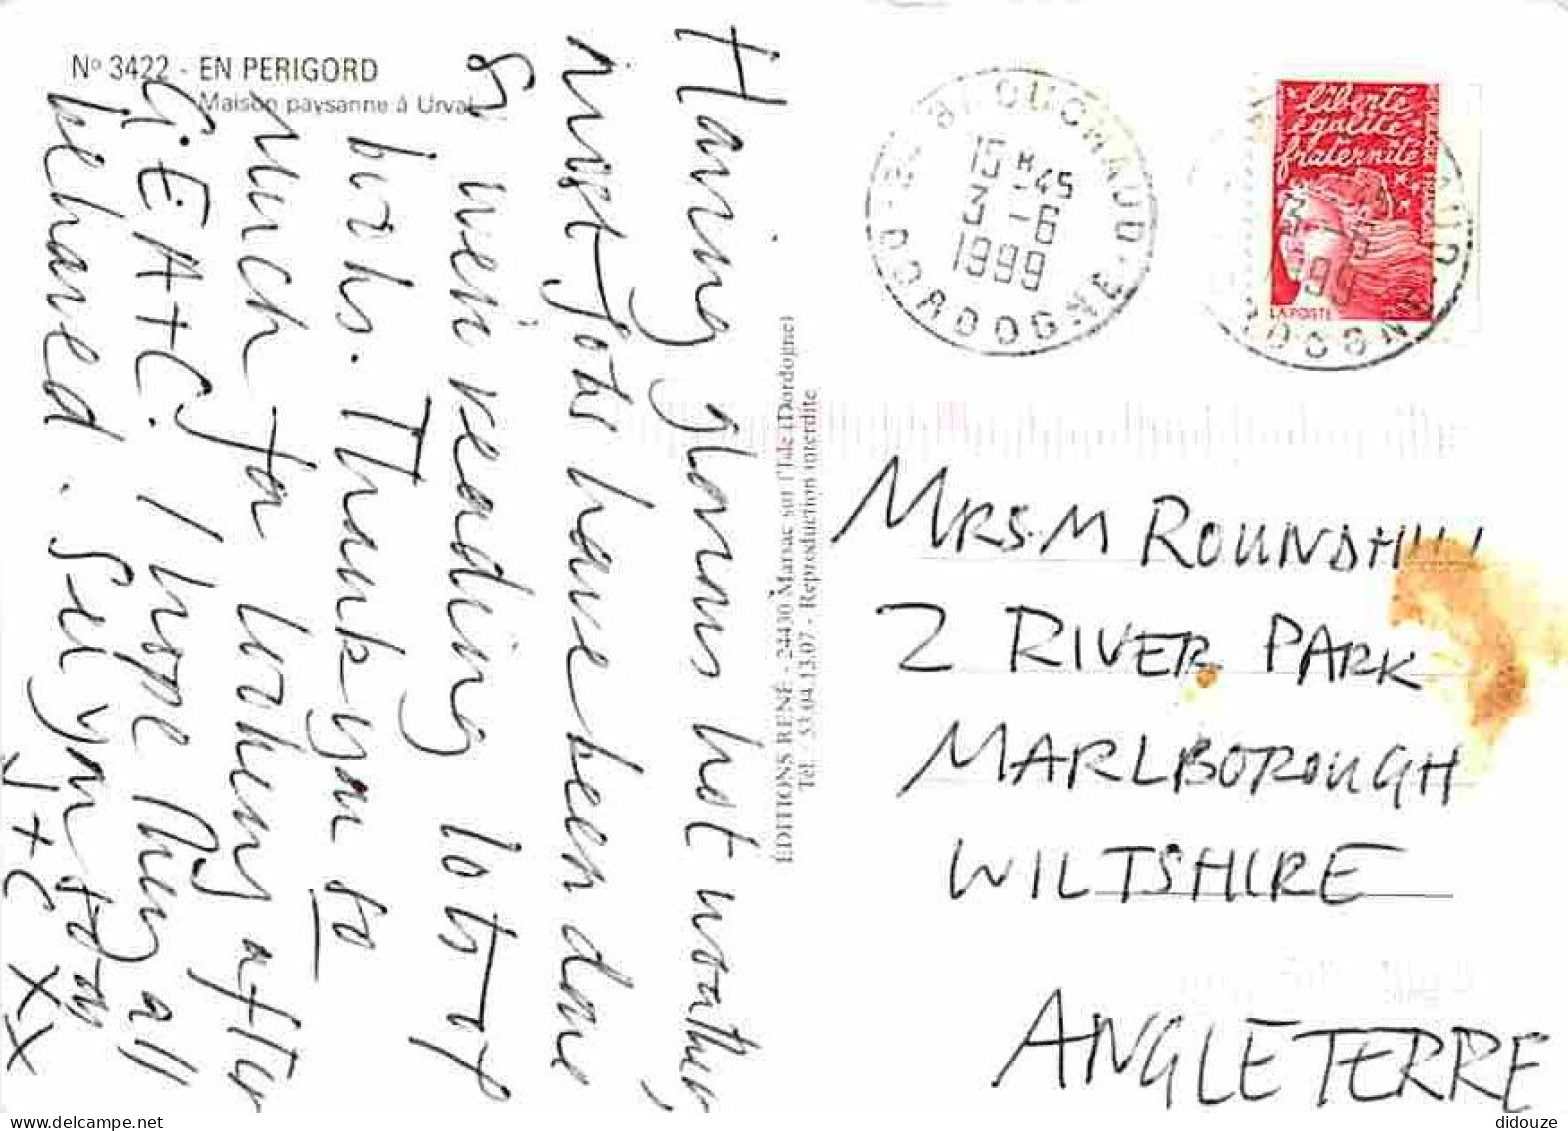 Nº 3422 - EN PERIGORD
Maison paysanne à Urval
Having glorious hot weather,
most jobs have been done
& we're reading lots of
books. Thank you so
much for looking after
G.E A+C. I hope they all
behaved. See you soon
J+C XX
EDITIONS RENÉ - 24430 Marsac sur l'Isle (Dordogne)
Tél. : 53.04.13.07 - Reproduction interdite
BOUCHAUD
15H45
3-6
1999
DORDOGNE
liberté
égalité
fraternité
LA POSTE
MRS. M ROUNDHILL
2 RIVER PARK
MARLBOROUGH
WILTSHIRE
ANGLETERRE
www.delcampe.net
didouze